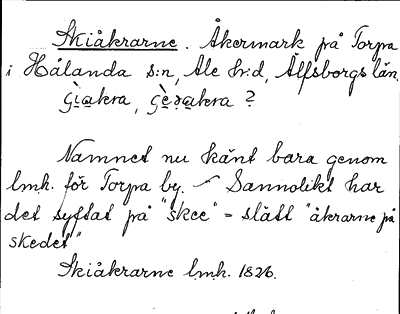 Skiåkrarne. Åkermark på Torpa
i Hålanda s:n, Ale h:d, Älfsborgs län.
Namnet nu känt bara genom
lmh. för Torpa by. – Sannolikt har
det syftat på "skee" = slätt "åkrarne på
skedet"
Skiåkrarne lmh. 1826.